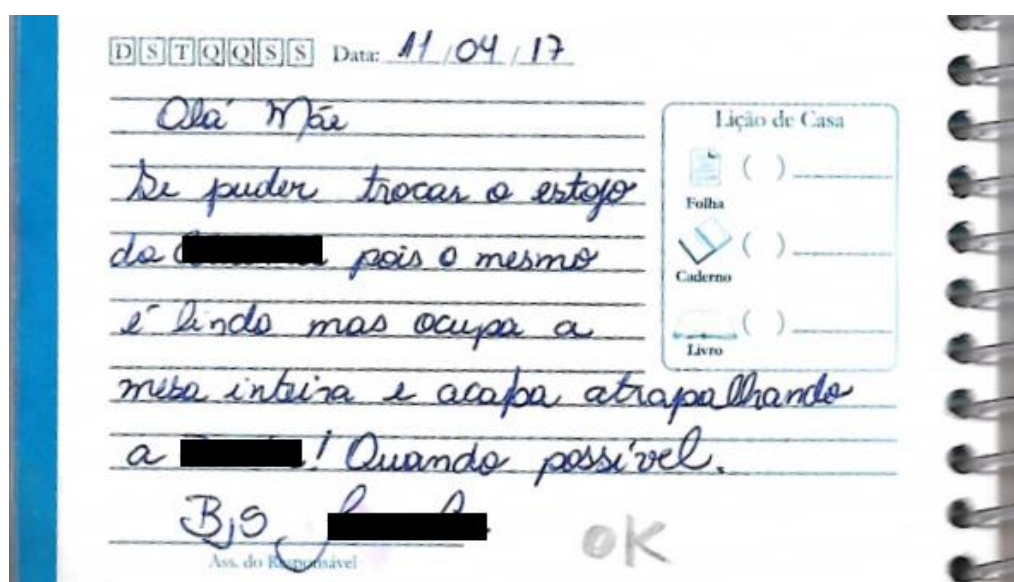 D S T Q Q S S Data: 11/04/17
Olá Mãe
Se puder trocar o estojo
da pois o mesmo
é lindo mas ocupa a
mesa inteira e acaba atrapalhando
a ! Quando possível.
Bjs
Ass. do Responsável
OK
Lição de Casa
( )
Folha
( )
Caderno
( )
Livro